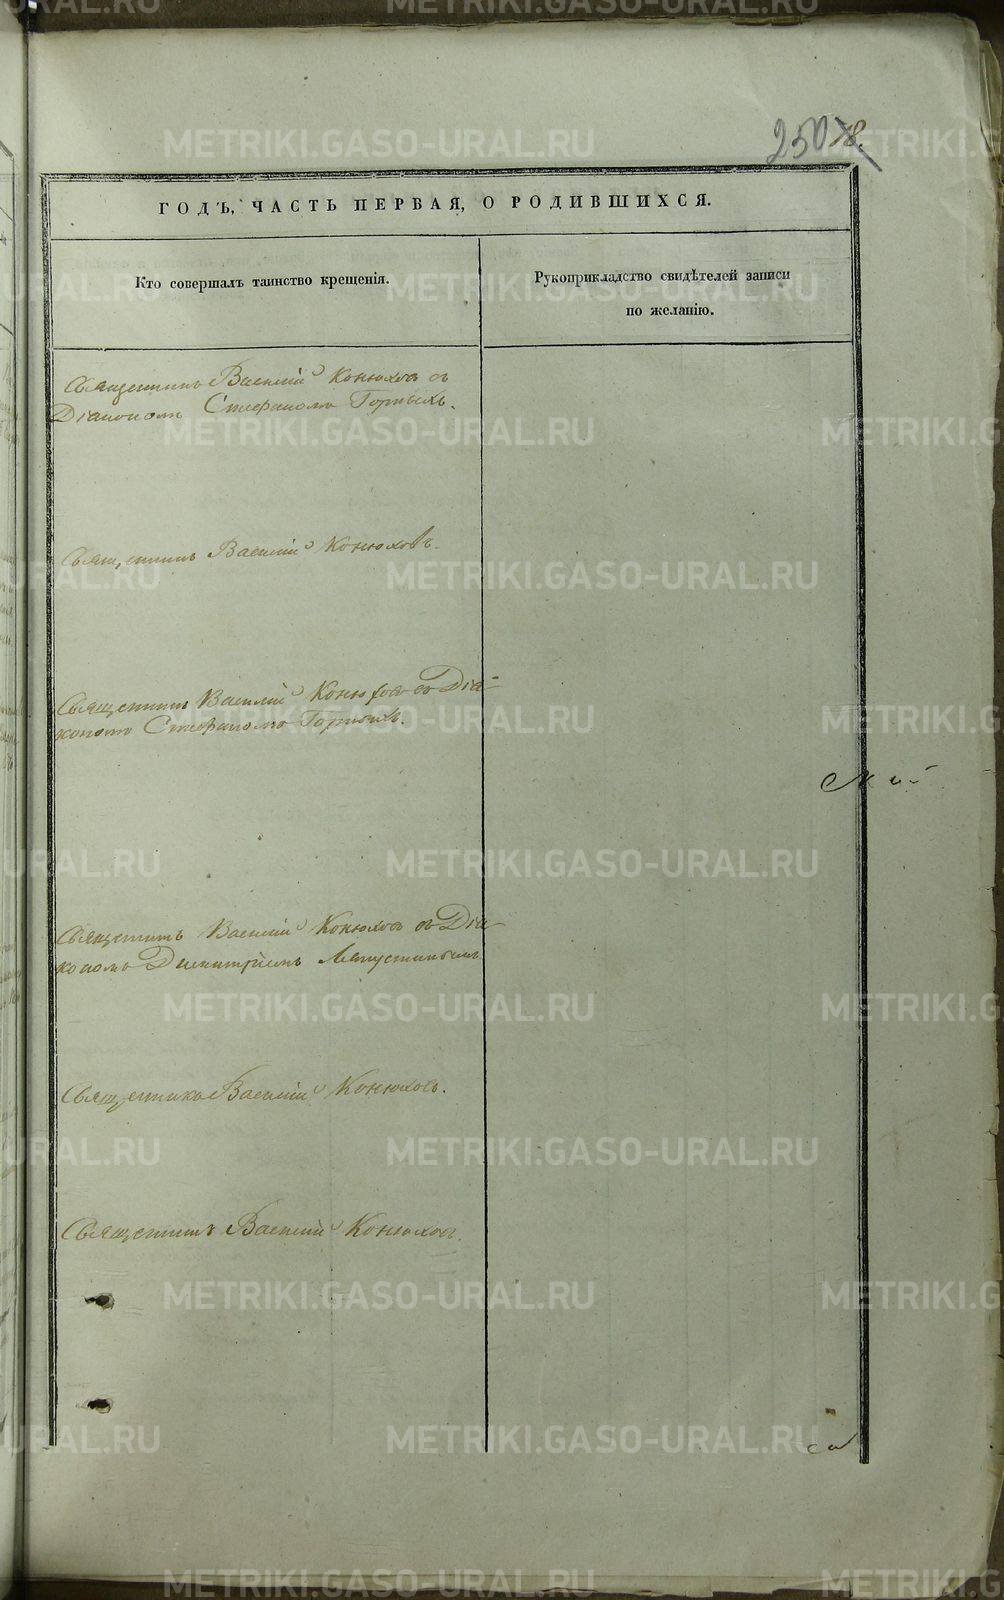 250 18.
ГОДЪ, ЧАСТЬ ПЕРВАЯ, О РОДИВШИХСЯ.
Кто совершалъ таинство крещенія.
Рукоприкладство свидѣтелей записи
по желанію.
Священникъ Василій Конюховъ съ
Діакономъ Стефаномъ Горныхъ.
Священникъ Василій Конюховъ.
Священникъ Василій Конюховъ съ Діа-
кономъ Стефаномъ Горныхъ.
Священникъ Василій Конюховъ съ Діа-
кономъ Димитріемъ
Священникъ Василій Конюховъ.
Священникъ Василій Конюховъ.
METRIKI.GASO-URAL.RU